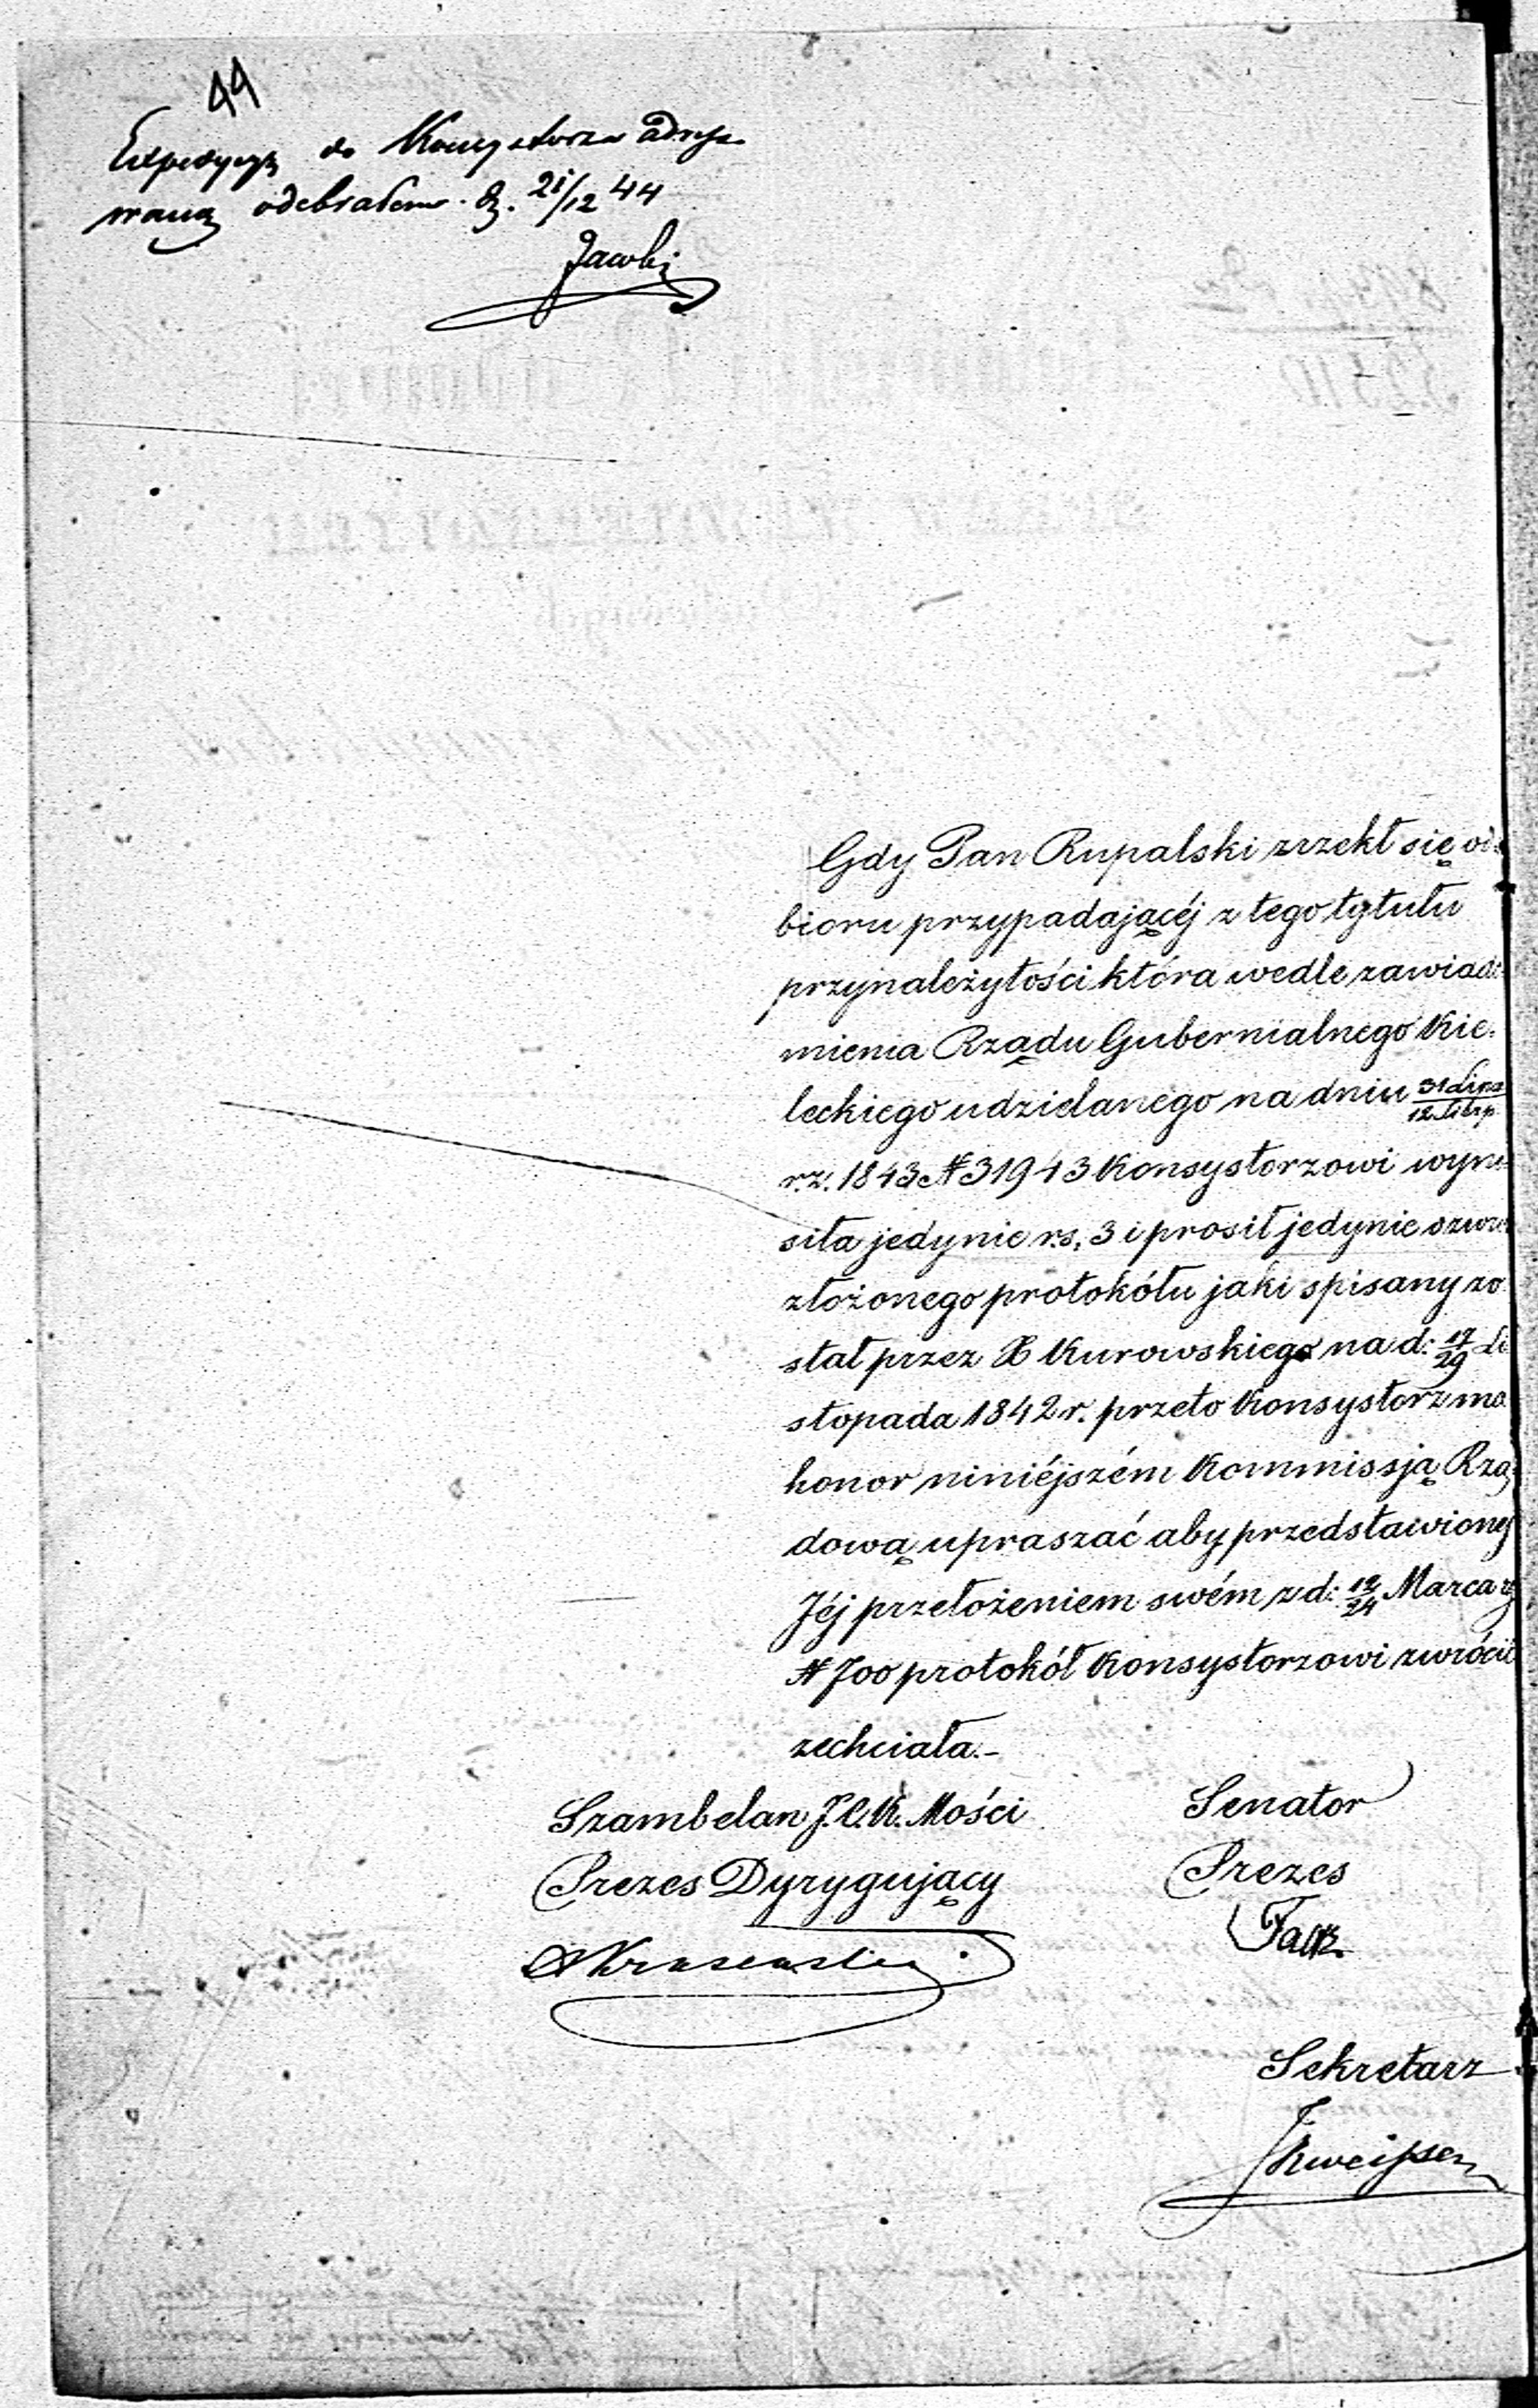 44
Expedycyą do Konsystorza adreso
waną odebrałem d. 21/12 44
Jacobi
Gdy Pan Rupalski zrzekł się od
bioru przypadającéj z tego tytułu
przynależytości która wedle zawiado
mienia Rządu Gubernialnego Kie
leckiego udzielanego na dniu 31 Lipca / 12 Sierp
r.z. 1843 N 31943 Konsystorzowi wyno
siła jedynie rs, 3 i prosił jedynie o zwrot
złożonego protokółu jaki spisany zo
stał przez X Kurowskiego na d: 17/29 Li
stopada 1842 r. przeto Konsystorz ma
honor niniéjszém Kommissją Rzą
dową upraszać aby przedstawiony
Jéj przełożeniem swém z d: 12/24 Marca
N 700 protokół Konsystorzowi zwrócić
zechciała.-
Szambelan J.C.K. Mości
Prezes Dyrygujący
Senator
Prezes
Falk
Sekretarz